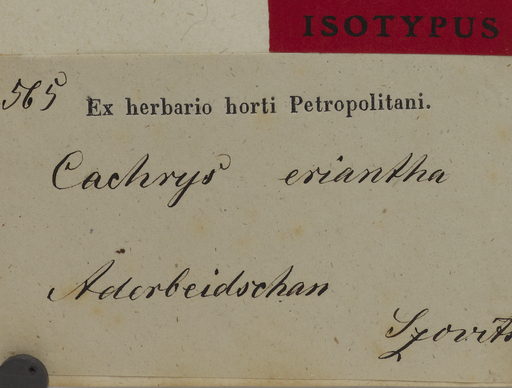 ISOTYPUS
565
Ex herbario horti Petropolitani.
Cachrys eriantha
Aderbeidschan
Szovits